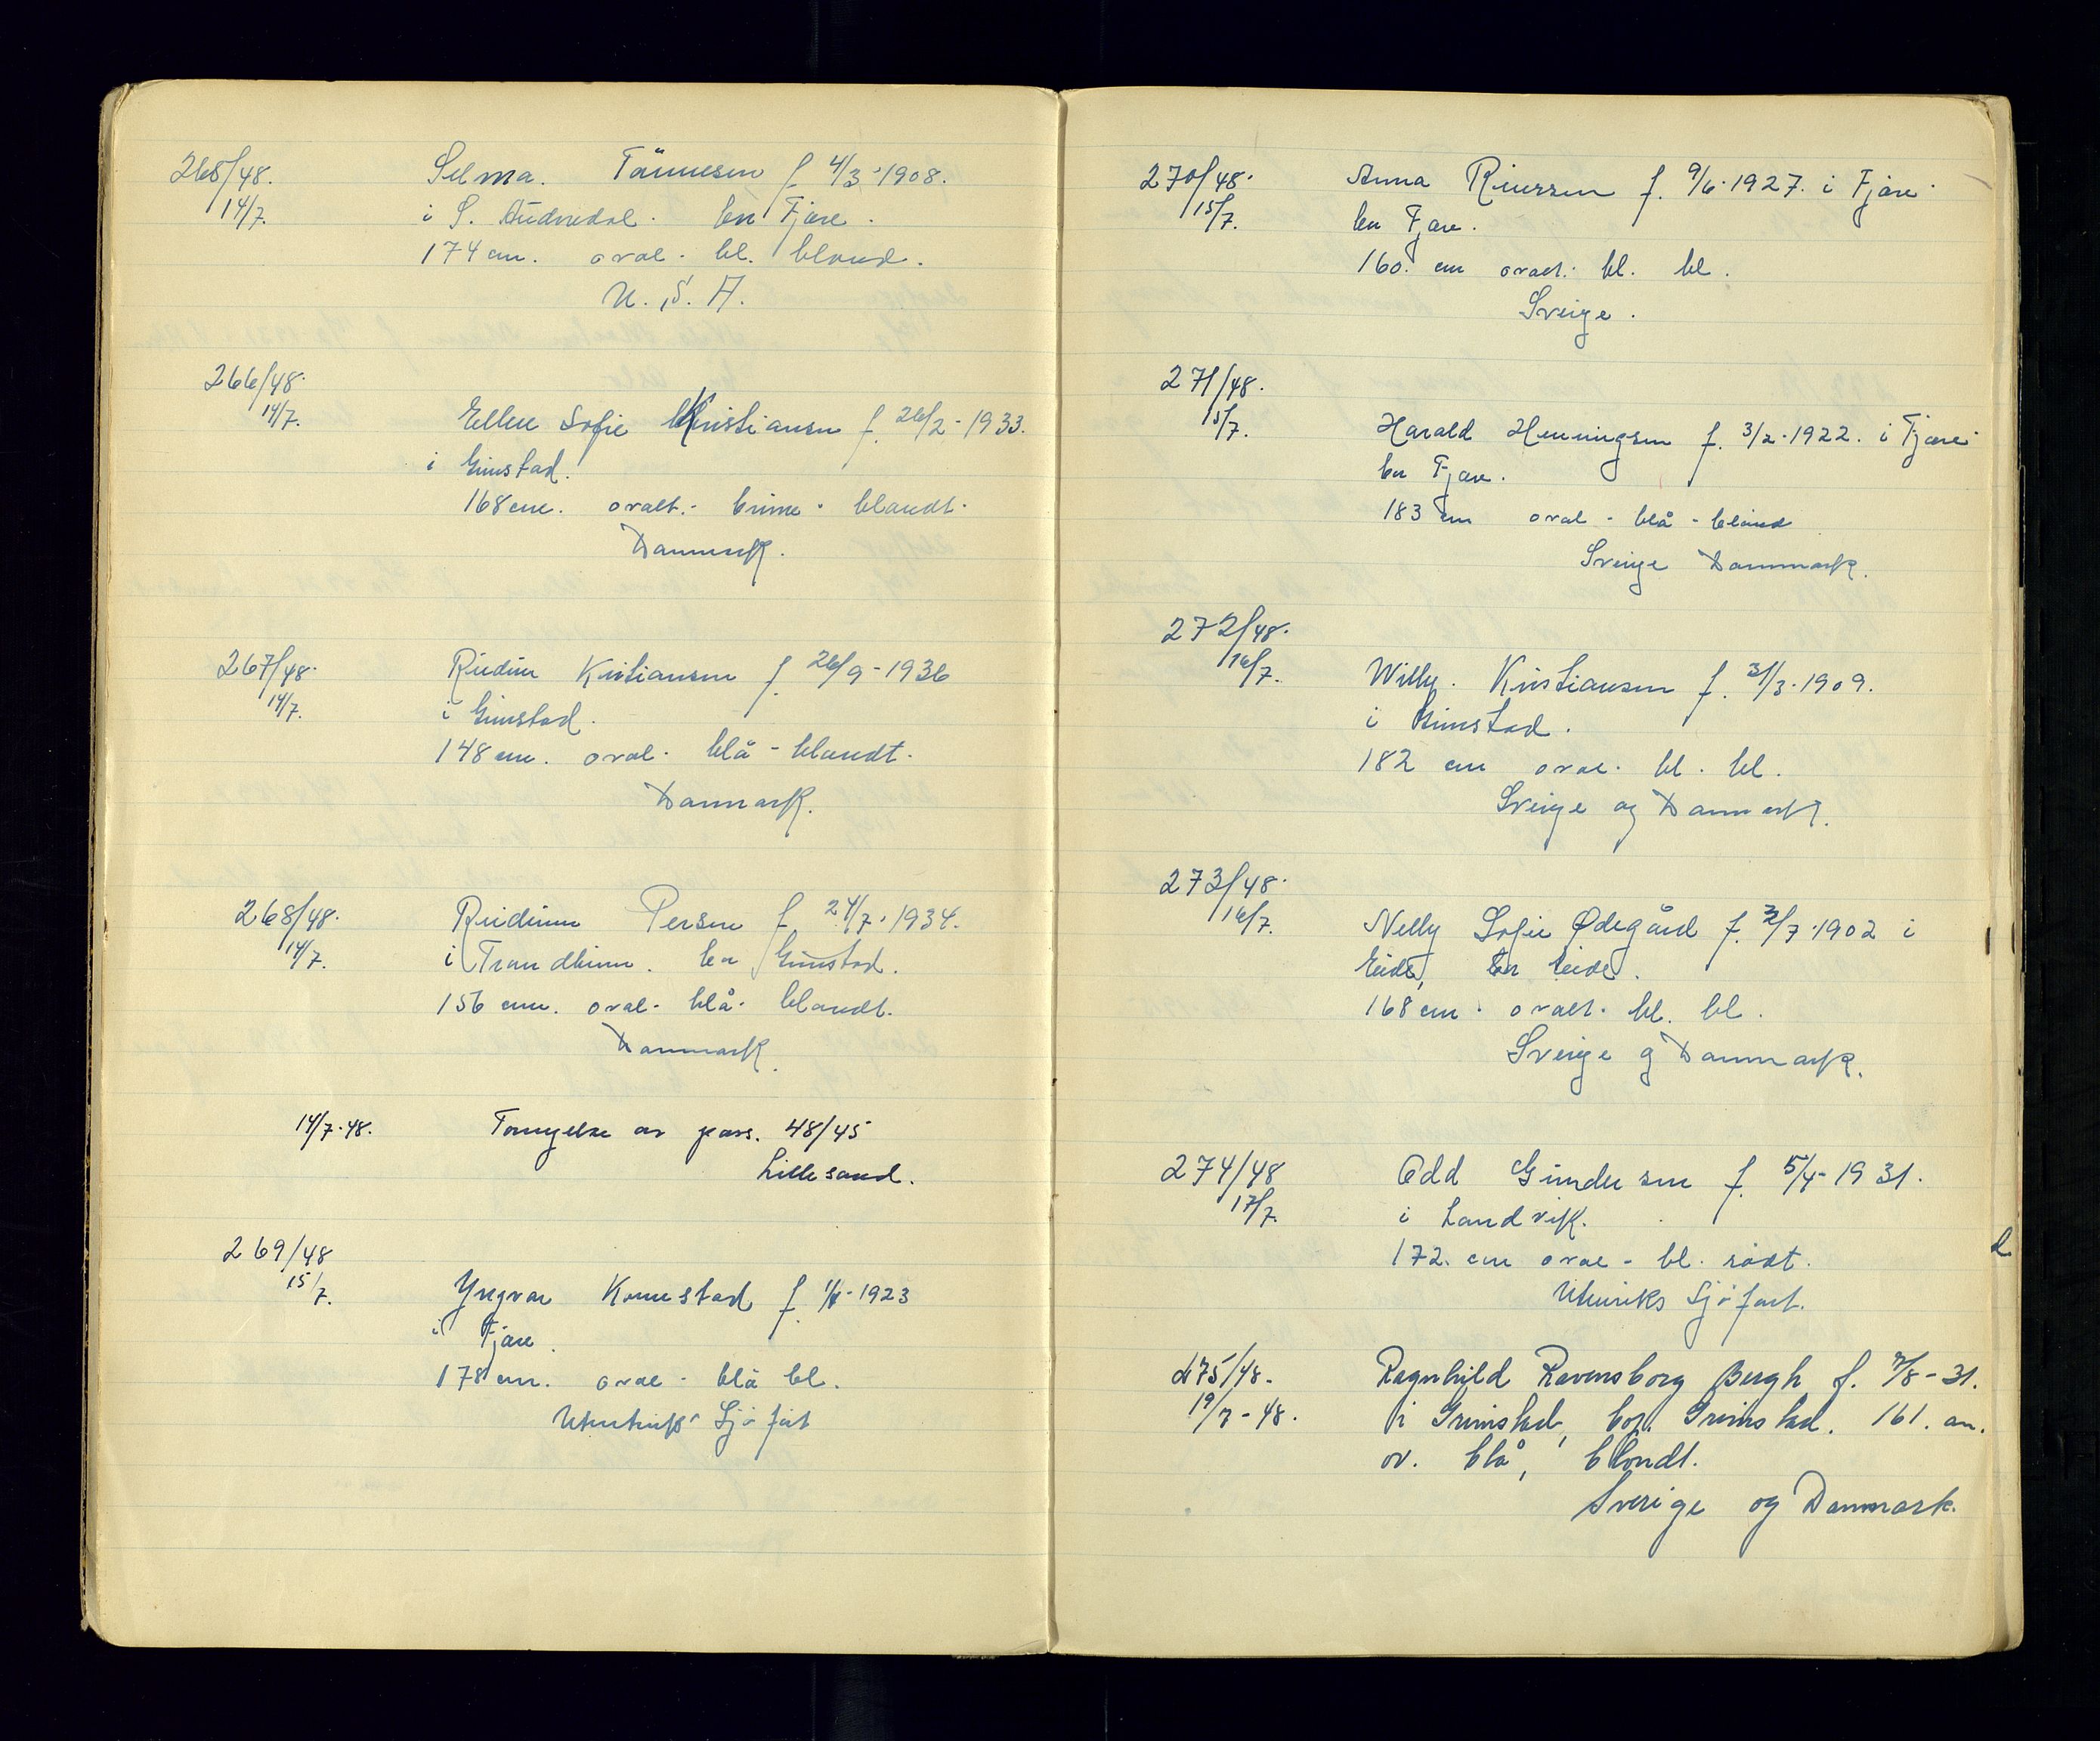 268/48.
14/7.
Selma. Tønnesen f 4/3-1908.
i S. Audnedal. bor Fjære.
174 cm. oval. bl. blond.
U. S. A.
266/48.
14/7.
Ellen Sofie Kristiansen f. 26/2-1933.
i Grimstad.
168 cm. ovalt.- brune. blandt.
Danmark.
267/48.
14/7.
Reidun Kristiansen f. 26/9-1936
i Grimstad.
148 cm. oval. blå - blandt.
Danmark.
268/48.
14/7.
Reidunn Persen f. 24/7.1934.
i Trondheim. bor Grimstad.
156 cm. oval. blå. blandt.
Danmark.
14/7-48.
Fornyelse av pass. 48/45
Lillesand.
269/48
15/7.
Yngvar f. 1923
i Fjære.
178 cm. oval - blå bl.
Utenriks Sjøfart
270/48.
15/7.
Anna f. 9/6.1927. i Fjære.
bor Fjære.
160. cm ovalt. bl. bl.
Sverige.
271/48.
15/7.
Harald Henningsen f. 3/2.1922. i Fjære.
bor Fjære.
183 cm oval - blå - blond
Sverige Danmark.
272/48.
16/7.
Willy. Kristiansen f. 31/3.1909.
i Grimstad.
182 cm oval. bl. bl.
Sverige og Danmark.
273/48.
16/7.
Nelly Sofie Ødegård f. /7.1902 i
Eide, bor Eide.
168 cm. ovalt. bl. bl.
Sverige og Danmark.
274/48
17/7.
Odd Gundersen f. 5/4-1931.
i Landvik.
172. cm oval - bl. rødt.
Utenriks Sjøfart.
275/48.
19/7-48.
Ragnhild Ravensborg Bergh f. /8-31.
i Grimstad, bor. Grimstad. 161. cm.
ov. blå, blondt.
Sverige og Danmark.